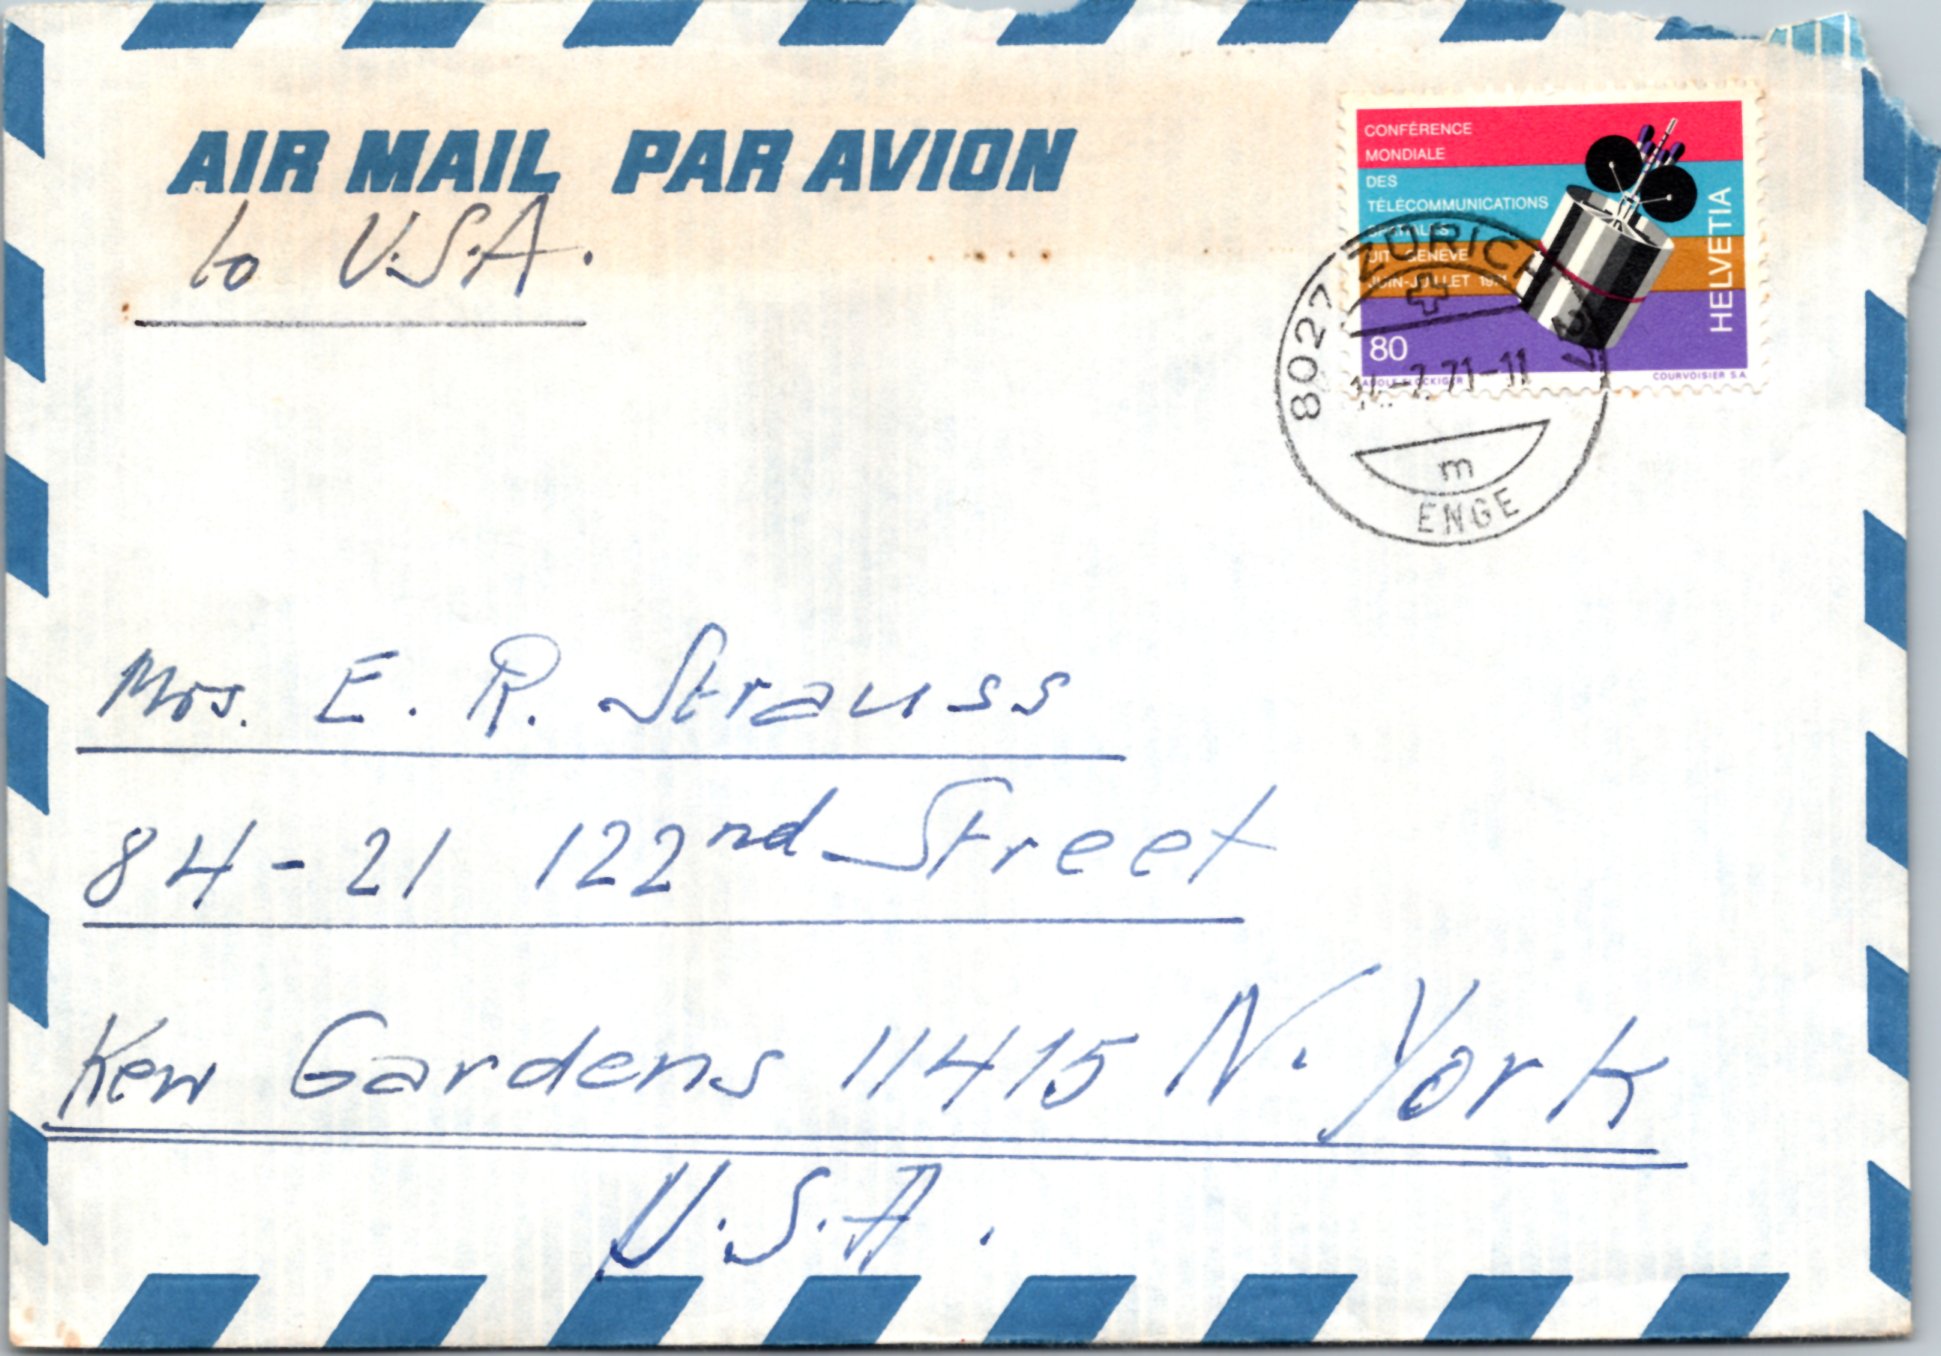 AIR MAIL PAR AVION
to U.S.A.
CONFÉRENCE
MONDIALE
DES
TÉLÉCOMMUNICATIONS
SPATIALES
UIT GENÈVE
JUIN-JUILLET 1971
HELVETIA
80
ADOLF FLÜCKIGER
COURVOISIER S.A.
8027 ZÜRICH 27
71-11
m
ENGE
Mrs. E. R. Strauss
84-21 122nd Street
Kew Gardens 11415 N. York
U.S.A.